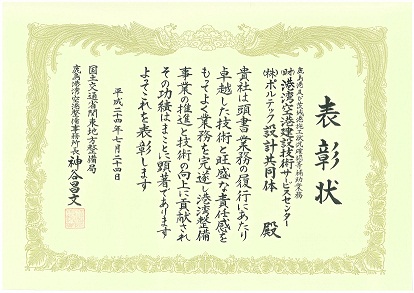 表彰状
鹿島港及び茨城港施工状況確認等補助業務
(財)港湾空港建設技術サービスセンター
(株)ポルテック設計共同体 殿
貴社は頭書業務の履行にあたり
卓越した技術と旺盛な責任感を
もってよく業務を完遂し港湾整備
事業の推進と技術の向上に貢献され
その功績はまことに顕著であります
よってこれを表彰します
平成二十四年七月二十四日
国土交通省関東地方整備局
鹿島港湾空港整備事務所長 神谷昌文